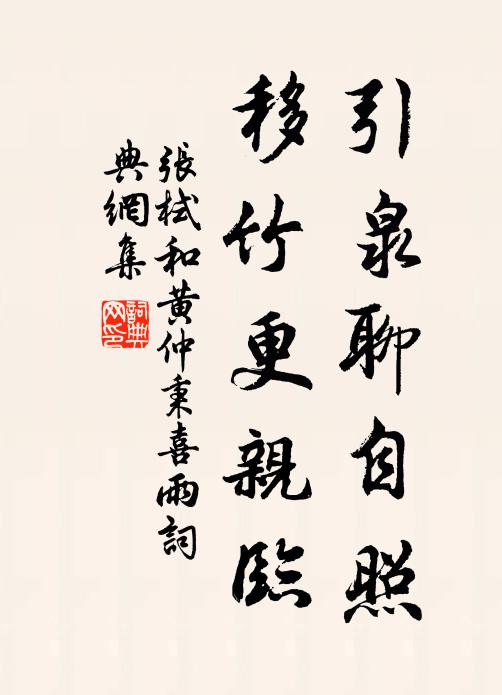 引泉聊自照
移竹更親臨
張栻和黃仲秉喜雨詞
典網集
詞典
网印